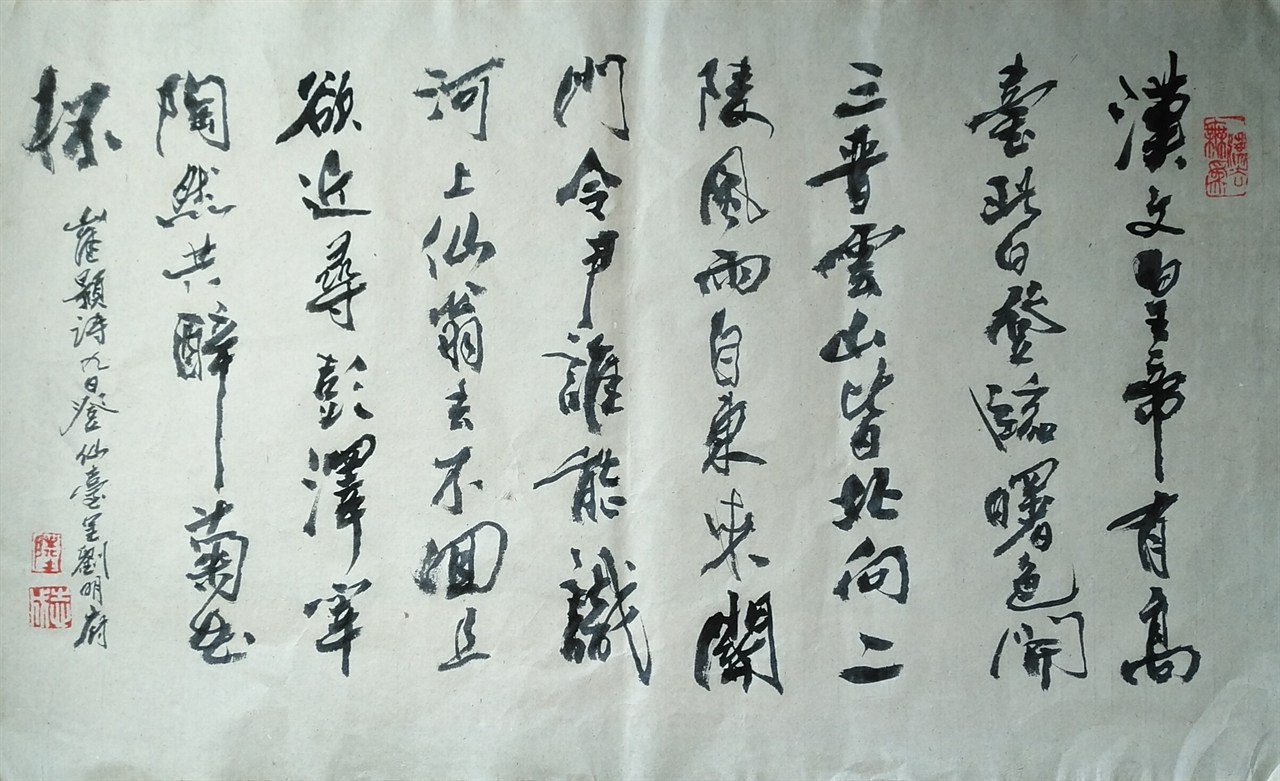 漢文皇帝有高
臺此日登臨曙色開
三晉雲山皆北向二
陵風雨自東來關
門令尹誰能識
河上仙翁去不回且
欲近尋彭澤宰
陶然共醉菊花
杯
崔顥詩九日登仙臺呈劉明府